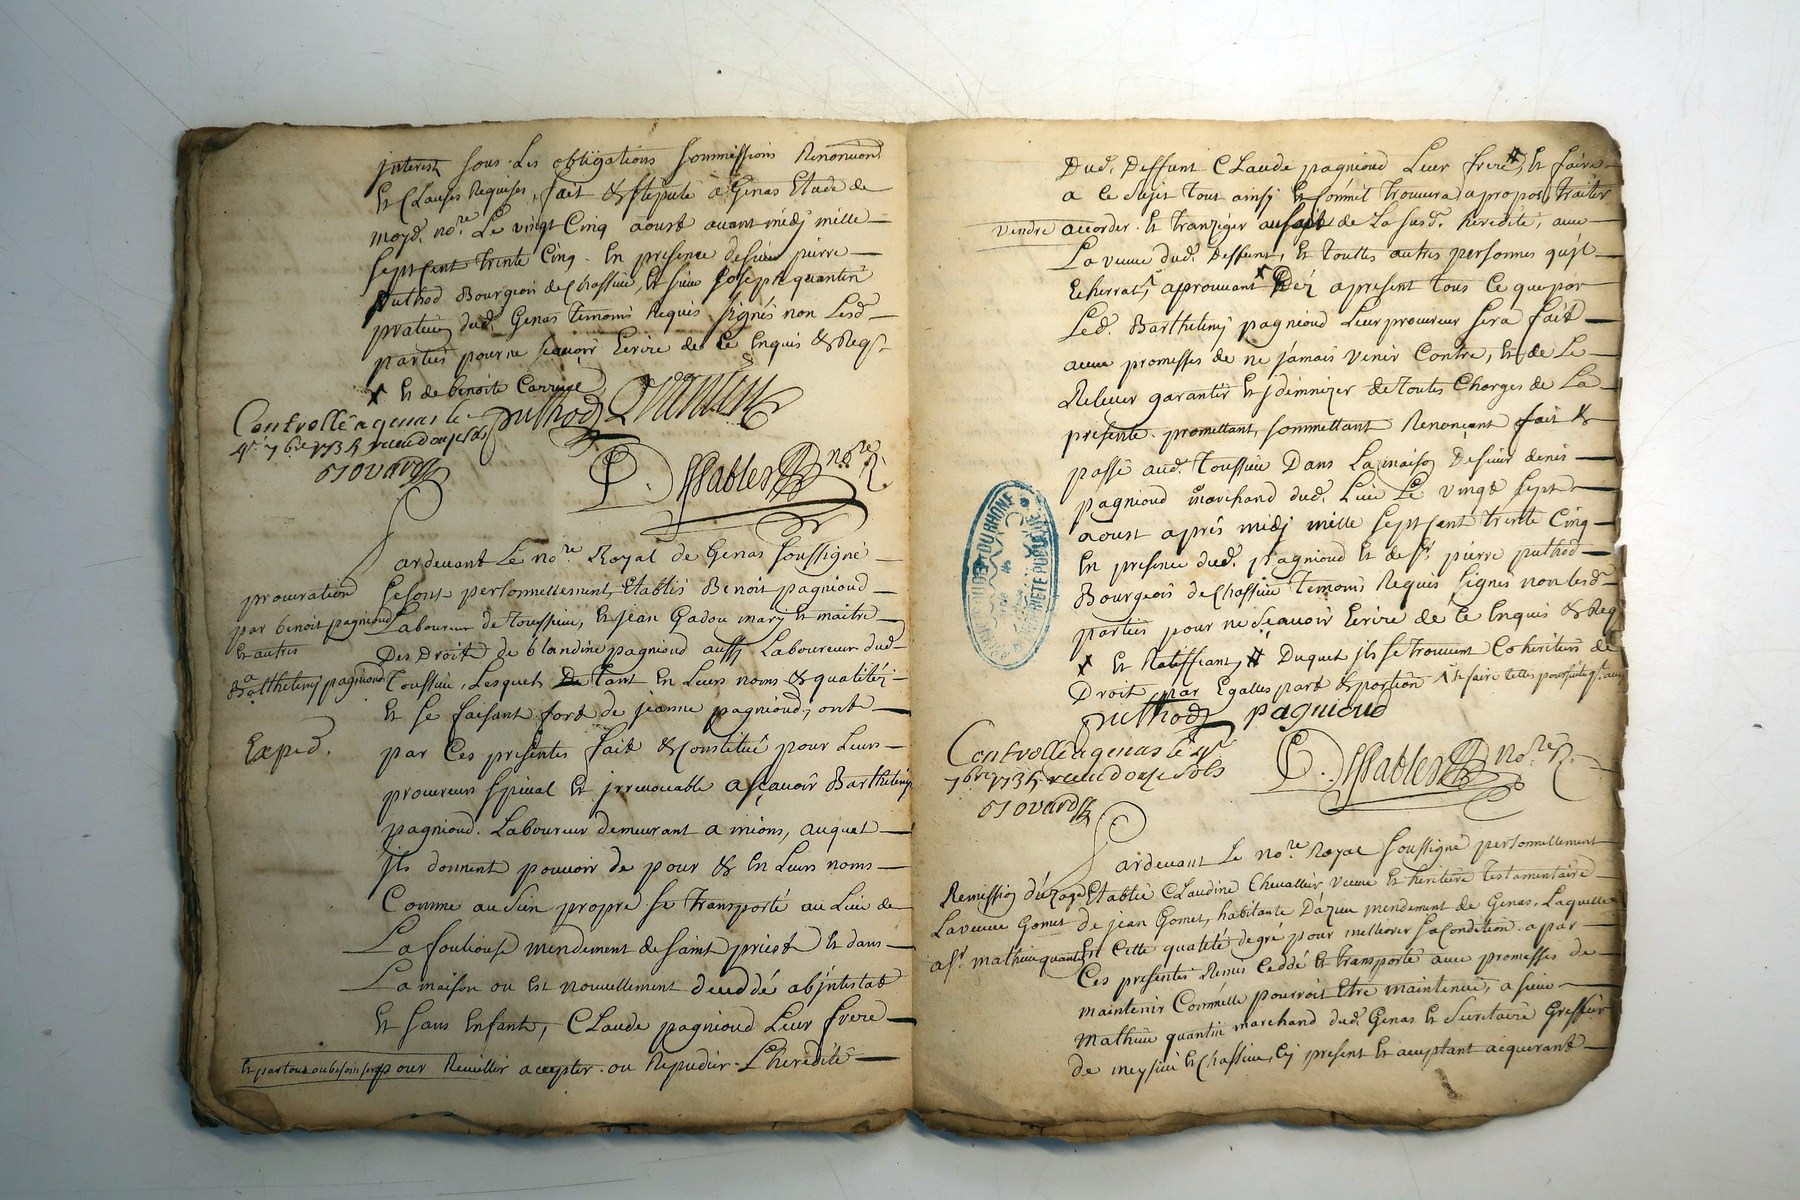 interest sous les obligations soummissions Renonciõns
Et Clauses Requises, fait & stipulé a Genas Etude de
moyd. no.re Le vingt Cinq aoust avant midy mille
sept cent trente Cinq. En presence de sieur pierre
puthod Bourgeois de Chassieu, Et sieur Joseph quantin
dud. Genas temoins Requis signés non Lesd.
parties pour ne sçavoir Ecrire de ce Enquis & Reqs.
x Et de benoite Carrige
puthod Quantin
Controllé a genas le
4e 7bre 1735 receu douze sols
P. DSsables no.re R.
Pardevant Le no.re Royal de Genas soussigné
procuration
par benoit pagnioud
Et autres
a Barthelemy pagnioud
Exped.
se sont personnellement Etablis Benoit pagnioud
Laboureur de Toussieu, Et jean Gadou mary Et maitre
Des Droits de blandine pagnioud aussy Laboureur dud.
Toussieu, Lesquels tant En Leurs noms & qualitéz
Et se faisant fort de jeanne pagnioud, ont
par Ces presentes fait & Constitué pour Leur
procureur special Et jrrevocable asçavoir Barthelemy
pagnioud. Laboureur demeurant a mions, auquel
jls donnent pouvoir de pour & En Leurs noms
Comme au sien propre se transporté au Lieu de
La fouliouse mendement de saint priest Et dans
La maison ou Est nouvellement deceddé abjntestat
Et sans Enfants, Claude pagnioud Leur frere
Et par tout ou besoin sera pour Recuillir accepter. ou Repudier. L'heredité
Dud. Deffunt Claude pagnioud Leur frere #, Et faire
a ce sujet tout ainsy Et Comme jl trouvera apropos, traiter
vendre accorder. Et tranziger au sujet de La susd. heredité, avec
La veuve dud. Deffunt, Et toutes autres personnes qu'jl
Echerrat, aprouvant x Déz apresent tous ce que por
Led. Barthelemy pagnioud Leur procureur sera fait
avec promesses de ne jamais venir Contre, Et de Le
Relever garantir Et jdemnizer de toutes Charges de La
presente. promettant, soumettant Renonçant fait &
passé aud. Toussieu Dans La maison De sieur denis
pagnioud marchand dud. Lieu Le vingt sept
aoust aprés midy mille sept cent trente Cinq
En presence dud. sr. pagnioud Et de sr. pierre puthod
Bourgeois de Chassieu Temoins Requis signés non lesd.
parties pour ne sçavoir Ecrire de ce Enquis & Req
x Et Ratiffiant, # Duquel jls se trouvent Coheritiers de
Droit par Egalles part & portion Et faire telles poursuites
puthod pagnioud
Controllé a genas le 4e
7bre 1735 receu douze sols
P. DSsables no.re R.
Pardevant Le no.re Royal soussigné personnellement
Remission
La veuve Gomet
a sr. mathieu quantin
Etablie Claudine Chevallier veuve Et heritiere testamentaire
de jean Gomet, habitante D'azieu mendement de Genas, Laquelle
En Cette qualité degré pour melliorer sa condition a par
Ces presentes Remis Ceddé Et transporté avec promesses de
maintenir Comm'elle pourroit Etre maintenüe, a sieur
mathieu quantin marchand dud. Genas Et secretaire Greffier
de meysieu Et Chassieu, Cy present Et acceptant acquerant